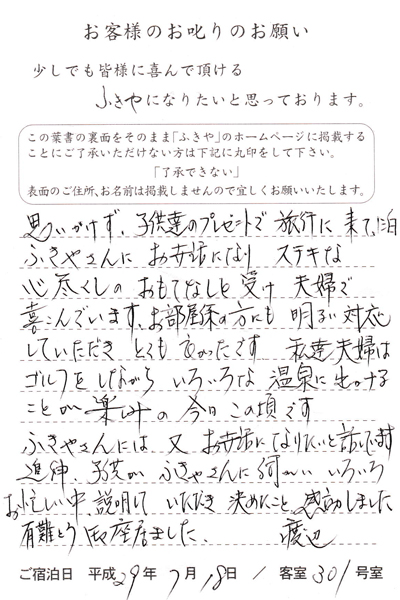 お客様のお叱りのお願い
少しでも皆様に喜んで頂ける
ふきやになりたいと思っております。
この葉書の裏面をそのまま「ふきや」のホームページに掲載する
ことにご了承いただけない方は下記に丸印をして下さい。
「了承できない」
表面のご住所、お名前は掲載しませんので宜しくお願いいたします。
思いがけず、子供達のプレゼントで 旅行に 来て、泊
ふきやさんに お世話になり ステキな
心尽くしの おもてなしを 受け 夫婦で
喜こんでいます、お部屋係の方にも 明るい対応
していただき とても 良かったです 私達夫婦は
ゴルフをしながら いろいろな 温泉に 出かける
ことが 楽しみの 今日この頃です
ふきやさんには 又 お世話になりたいと話してます
追伸、子供が ふきやさんに伺がい いろいろ
お忙しい中 説明して いただき 決めたこと 感動しました
有難とう御座居ました、 渡辺
ご宿泊日 平成29年7月18日 / 客室301号室